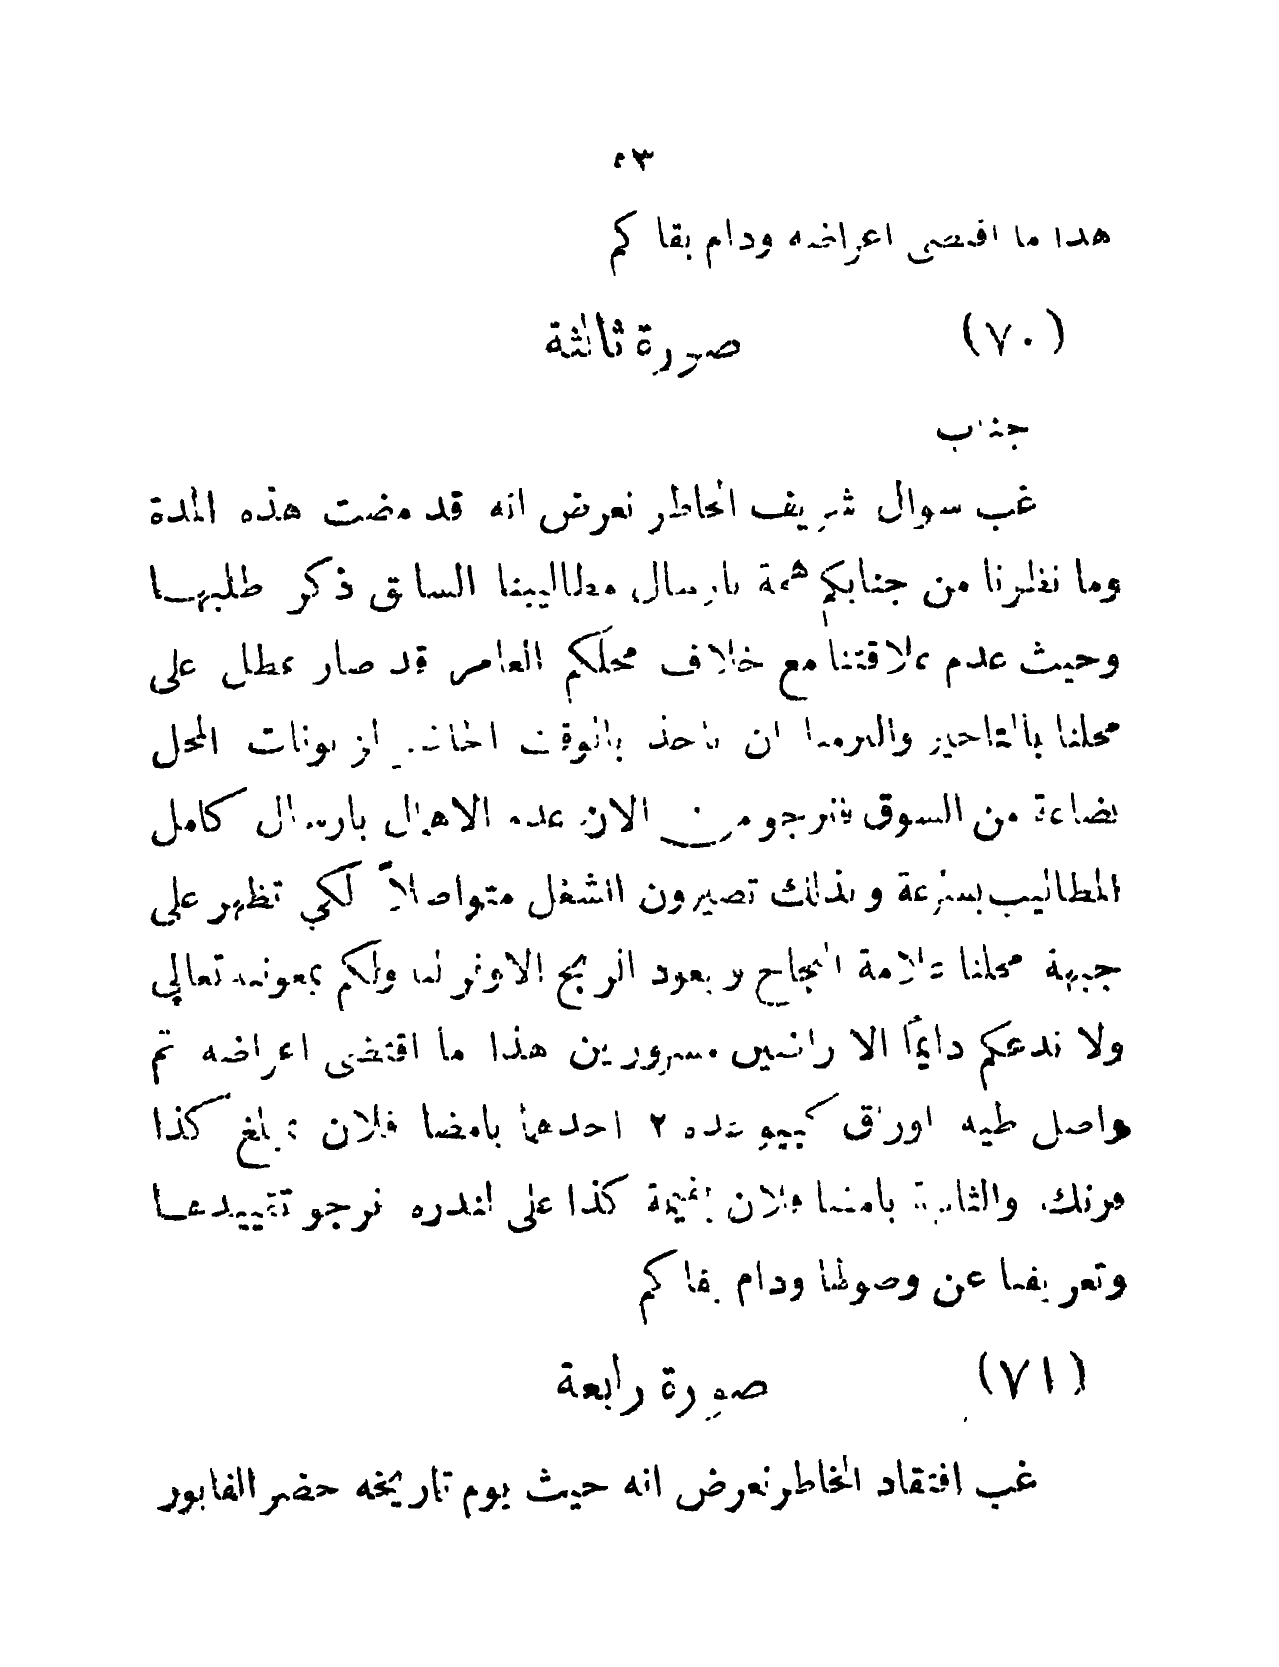 ٥٣
هذا ما اقتضى اعراضه ودام بقاكم
(٧٠) صورة ثالثة
جناب
غب سوال شريف الخاطر نعرض انه قد مضت هذه المدة
وما نظرنا من جنابكم همة بارسال مطاليبنا السابق ذكر طلبهـا
وحيث عدم علاقتنا مع خلاف محلكم العامر قد صار عطل على
محلنا بالتاخير والتزمنا ان ناخذ بالوقت الحاضر لزبونات المحل
بضاعة من السوق فنرجو من الان عدم الاهمال بارسال كامل
المطاليب بسرعة وبذلك تصيرون الشغل متواصلاً لكي تظهر على
جبهة محلنا علامة النجاح ويعود الربح الاوفر لنا ولكم بمعونته تعالى
ولا ندعكم دايمًا الا راضين مسرورين هذا ما اقتضى اعراضه ثم
واصل طيه اوراق كمبيو عدد ٢ احدهما بامضا فلان بمبلغ كذا
فرنك والثانية بامضا فلان بقيمة كذا على لندره نرجو تقييدهـا
وتعريفنا عن وصولها ودام بقاكم
(٧١) صورة رابعة
غب افتقاد الخاطر نعرض انه حيث يوم تاريخه حضر الفابور